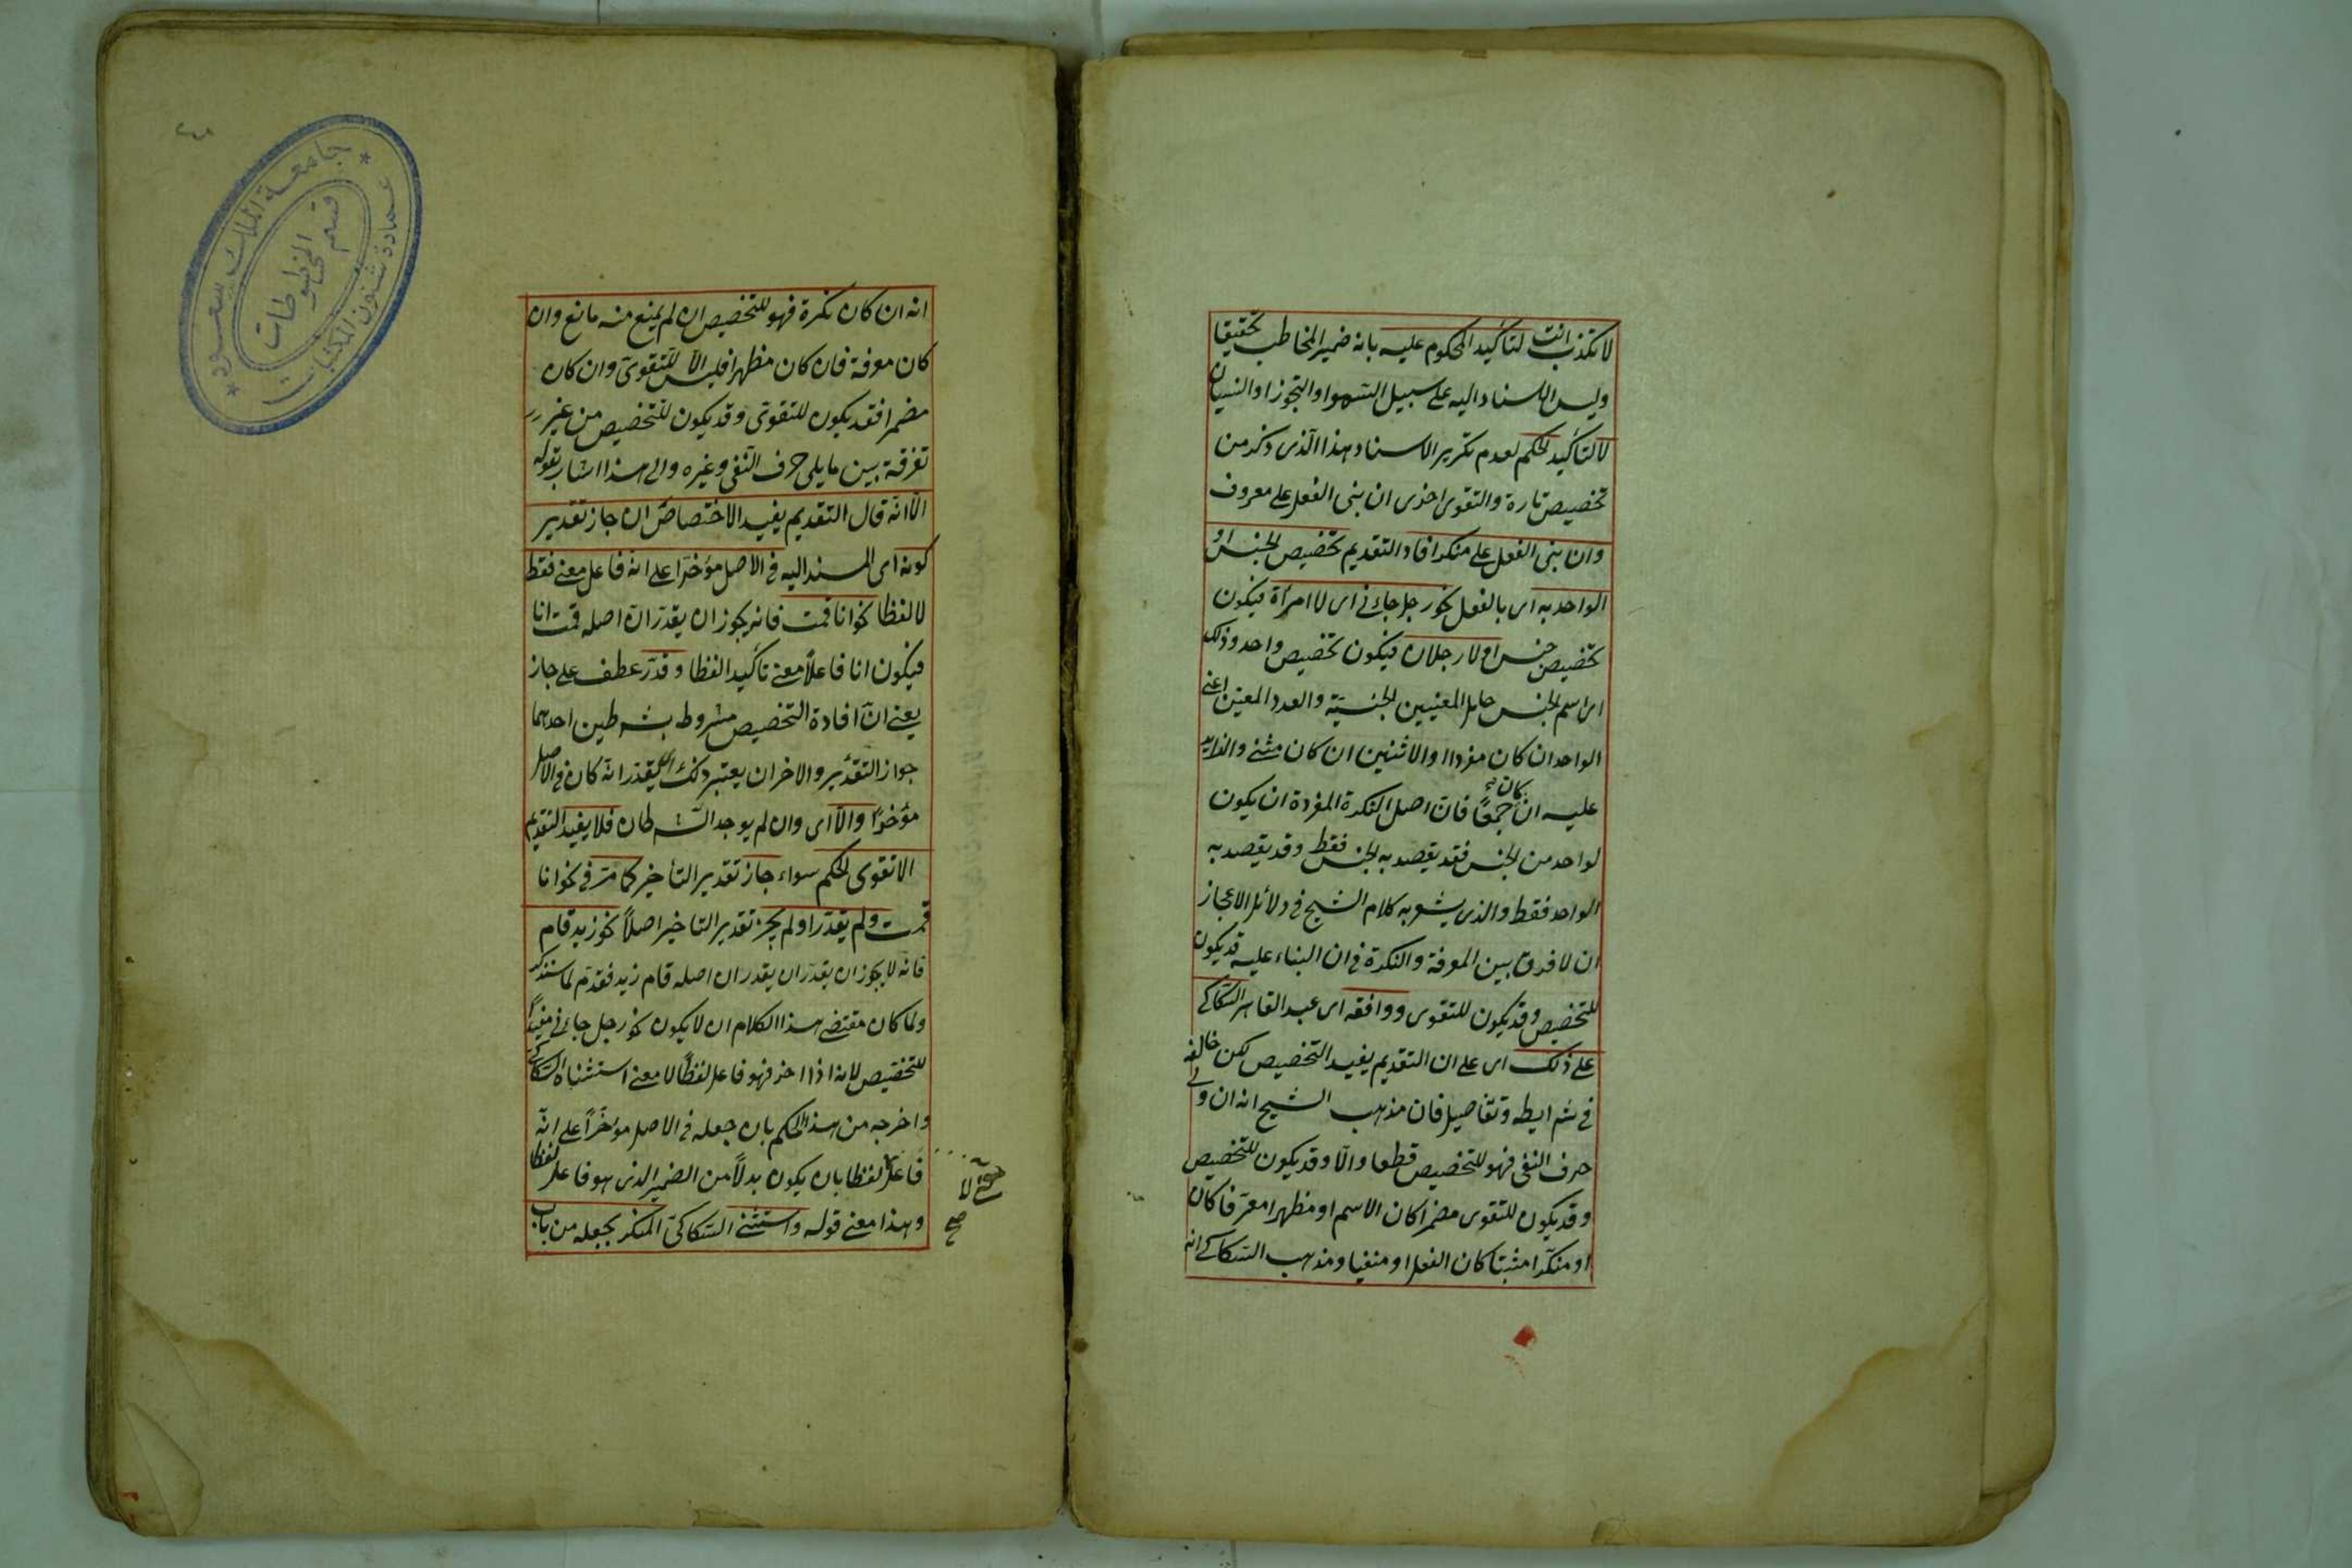 لا تكذب انت لتأكيد المحكوم عليه بانه ضمير المخاطب تحقيقا
وليس الاسناد اليه على سبيل السهو او التجوز او النسيان
لا لتأكيد الحكم لعدم تكرير الاسناد وهذا الذى ذكر من
تخصيص تارة والتقوى اخرى ان بنى الفعل على معروف
وان بنى الفعل على منكر افاد التقديم تخصيص الجنس او
الواحد به اى بالفعل نحو رجل جاءنى اى لا امرأة فيكون
تخصيص جنس او لا رجلان فيكون تخصيص واحد وذلك
اى اسم الجنس حامل المعنيين الجنسية والعدد المعين اعنى
الواحد ان كان مفردا او الاثنين ان كان مثنى والزايد
عليه ان كان جمعًا فان اصل النكرة المفردة ان يكون
لواحد من الجنس فقد يقصد به الجنس فقط وقد يقصد به
الواحد فقط والذى يشعر به كلام الشيخ فى دلائل الاعجاز
ان لا فرق بين المعرفة والنكرة فى ان البناء عليه قد يكون
للتخصيص وقد يكون للتقوى ووافقه اى عبد القاهر السكاكى
على ذلك اى على ان التقديم يفيد التخصيص لكن خالفه
فى شرايطه وتفاصيل فان مذهب الشيخ انه ان ولى
حرف النفى فهو للتخصيص قطعا والّا وقد يكون للتخصيص
وقد يكون للتقوى مضمرا كان الاسم او مظهرا معرّفا كان
او منكّرا مثبتا كان الفعل او منفيا ومذهب السكاكى انه
انه ان كان نكرة فهو للتخصيص ان لم يمنع منه مانع وان
كان معرفة فان كان مظهرا فليس الّا للتقوىّ وان كان
مضمرا فقد يكون للتقوى وقد يكون للتخصيص من غير
تفرقة بين ما يلى حرف النفى وغيره والى هذا اشار بقوله
الّا انّه قال التقديم يفيد الاختصاص ان جاز تقدير
كونه اى المسند اليه فى الاصل مؤخرًا على انه فاعل معنى فقط
لا لفظا نحو انا قمت فانه يجوز ان يقدّر انّ اصله قمت انا
فيكون انا فاعلًا معنى تأكيدا لفظا وقدّر عطف على جاز
يعنى انّ افادة التخصيص مشروط بشرطين احدهما
جواز التقدير والاخر ان يعتبر ذلك اى يقدّر انه كان فى الاصل
مؤخرًا والّا اى وان لم يوجد الشرطان فلا يفيد التقديم
الا تقوى الحكم سواء جاز تقدير التأخير كما مرّ فى نحو انا
قمت ولم يقدّر او لم يجز تقدير التاخير اصلًا نحو زيد قام
فانّه لا يجوز ان يقدّر ان يقدر ان اصله قام زيد فقدّم لما سنذكر
ولما كان مقتضى هذا الكلام ان لا يكون نحو رجل جاءنى مفيدًا
للتخصيص لانه اذا اخر فهو فاعل لفظًا لا معنى استثناه السكاكى
واخرجه من هذا الحكم بان جعله فى الاصل مؤخرًا على انّه
فاعل لفظا بان يكون بدلًا من الضمير الذى هو فاعل لفظا
وهذا معنى قوله واستثنى السكاكى المنكر بجعله من باب
معنى لا
صح
جامعة الملك سعود
قسم المخطوطات
عمادة شئون المكتبات